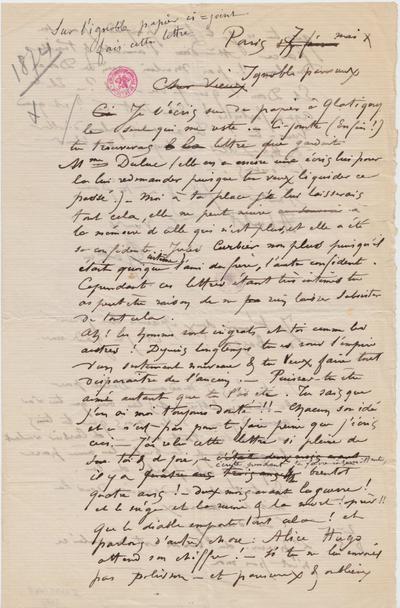 Sur l'ignoble papier ci-joint
fais cette lettre
1874
Paris 7 mai
Ignoble paresseux
Cher Vieux
Je t'écris sur du papier à Glatigny
le seul qui me reste. - Ci-joint (Enfin!)
tu trouveras la lettre que gardait
Mme (elle en a encore une écris lui pour
la lui redemander puisque tu veux liquider ce
passé.) - Moi à ta place je lui laisserais
tout cela, elle ne peut nuire
la mémoire de celle qui n'est plus, et elle a été
sa confidente, non plus puisqu'il
était quoique l'ami du frère, l'autre confident.
Cependant ces lettres étant très intimes tu
as peut être raison de ne rien laisser subsister
de tout cela.
Ah! les hommes sont ingrats, et toi comme les
autres! Depuis longtemps tu es sous l'empire
d'un sentiment nouveau & tu veux faire tout
disparaître de l'ancien. - Puisses-tu être
aimé autant que tu l'as été. Tu sais que
j'en ai moi toujours douté!! - Chacun son idée
et ce n'est pas pour te faire peine que j'écris
ceci. - J'ai relu cette lettre si pleine de
de joie,
il y a bientôt
quatre ans! - deux mois avant la guerre!
et le siège et la ruine & la mort!
que le diable emporte tout cela! et
parlons d'autre chose: Alice Hugo
attend son chiffre! - Si tu ne l'envoies
pas polisson - et paresseux & oublieux